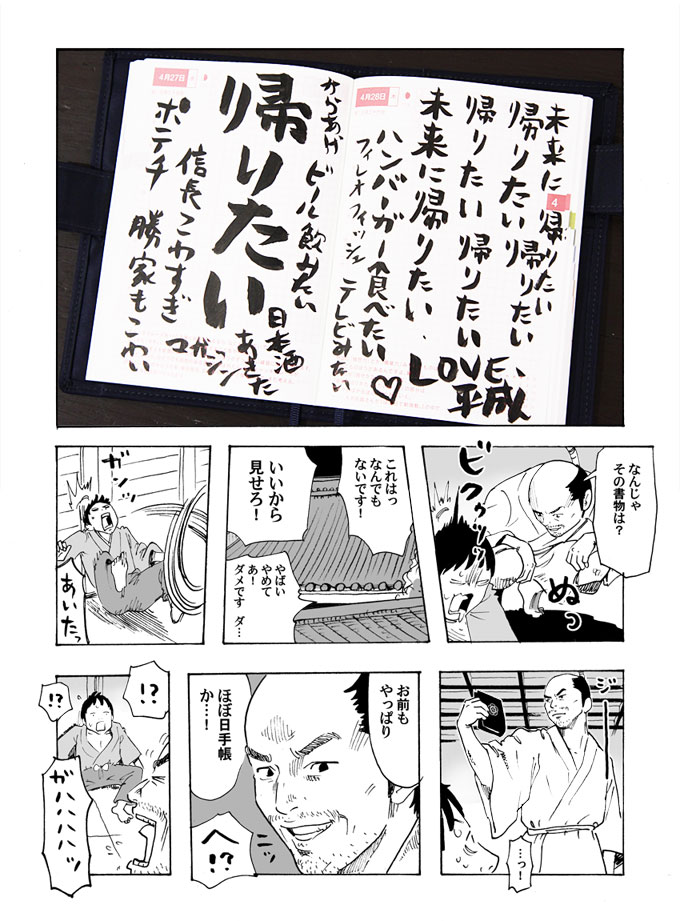 未来に帰りたい
帰りたい帰りたい
帰りたい帰りたい
未来に帰りたい、
LOVE、
平成
ハンバーガー食べたい
フィレオフィッシュ
テレビみたい
♡
4月28日
4
4月27日
からあげ
ビール飲みたい
帰りたい
日本酒
あきた
マガジン
信長こわすぎ
勝家もこわい
ポテチ
なんじゃ
その書物は？
ビクゥッッ
ぬっ
これはっ
なんでも
ないです！
いいから
見せろ！
やばい
やめて
あ！
ダメです ダ…
ガンッ
あいたっ
ジー
…っ！
お前も
やっぱり
ほぼ日手帳
か…！
へ!?
!?
!?
ガハハハハッ